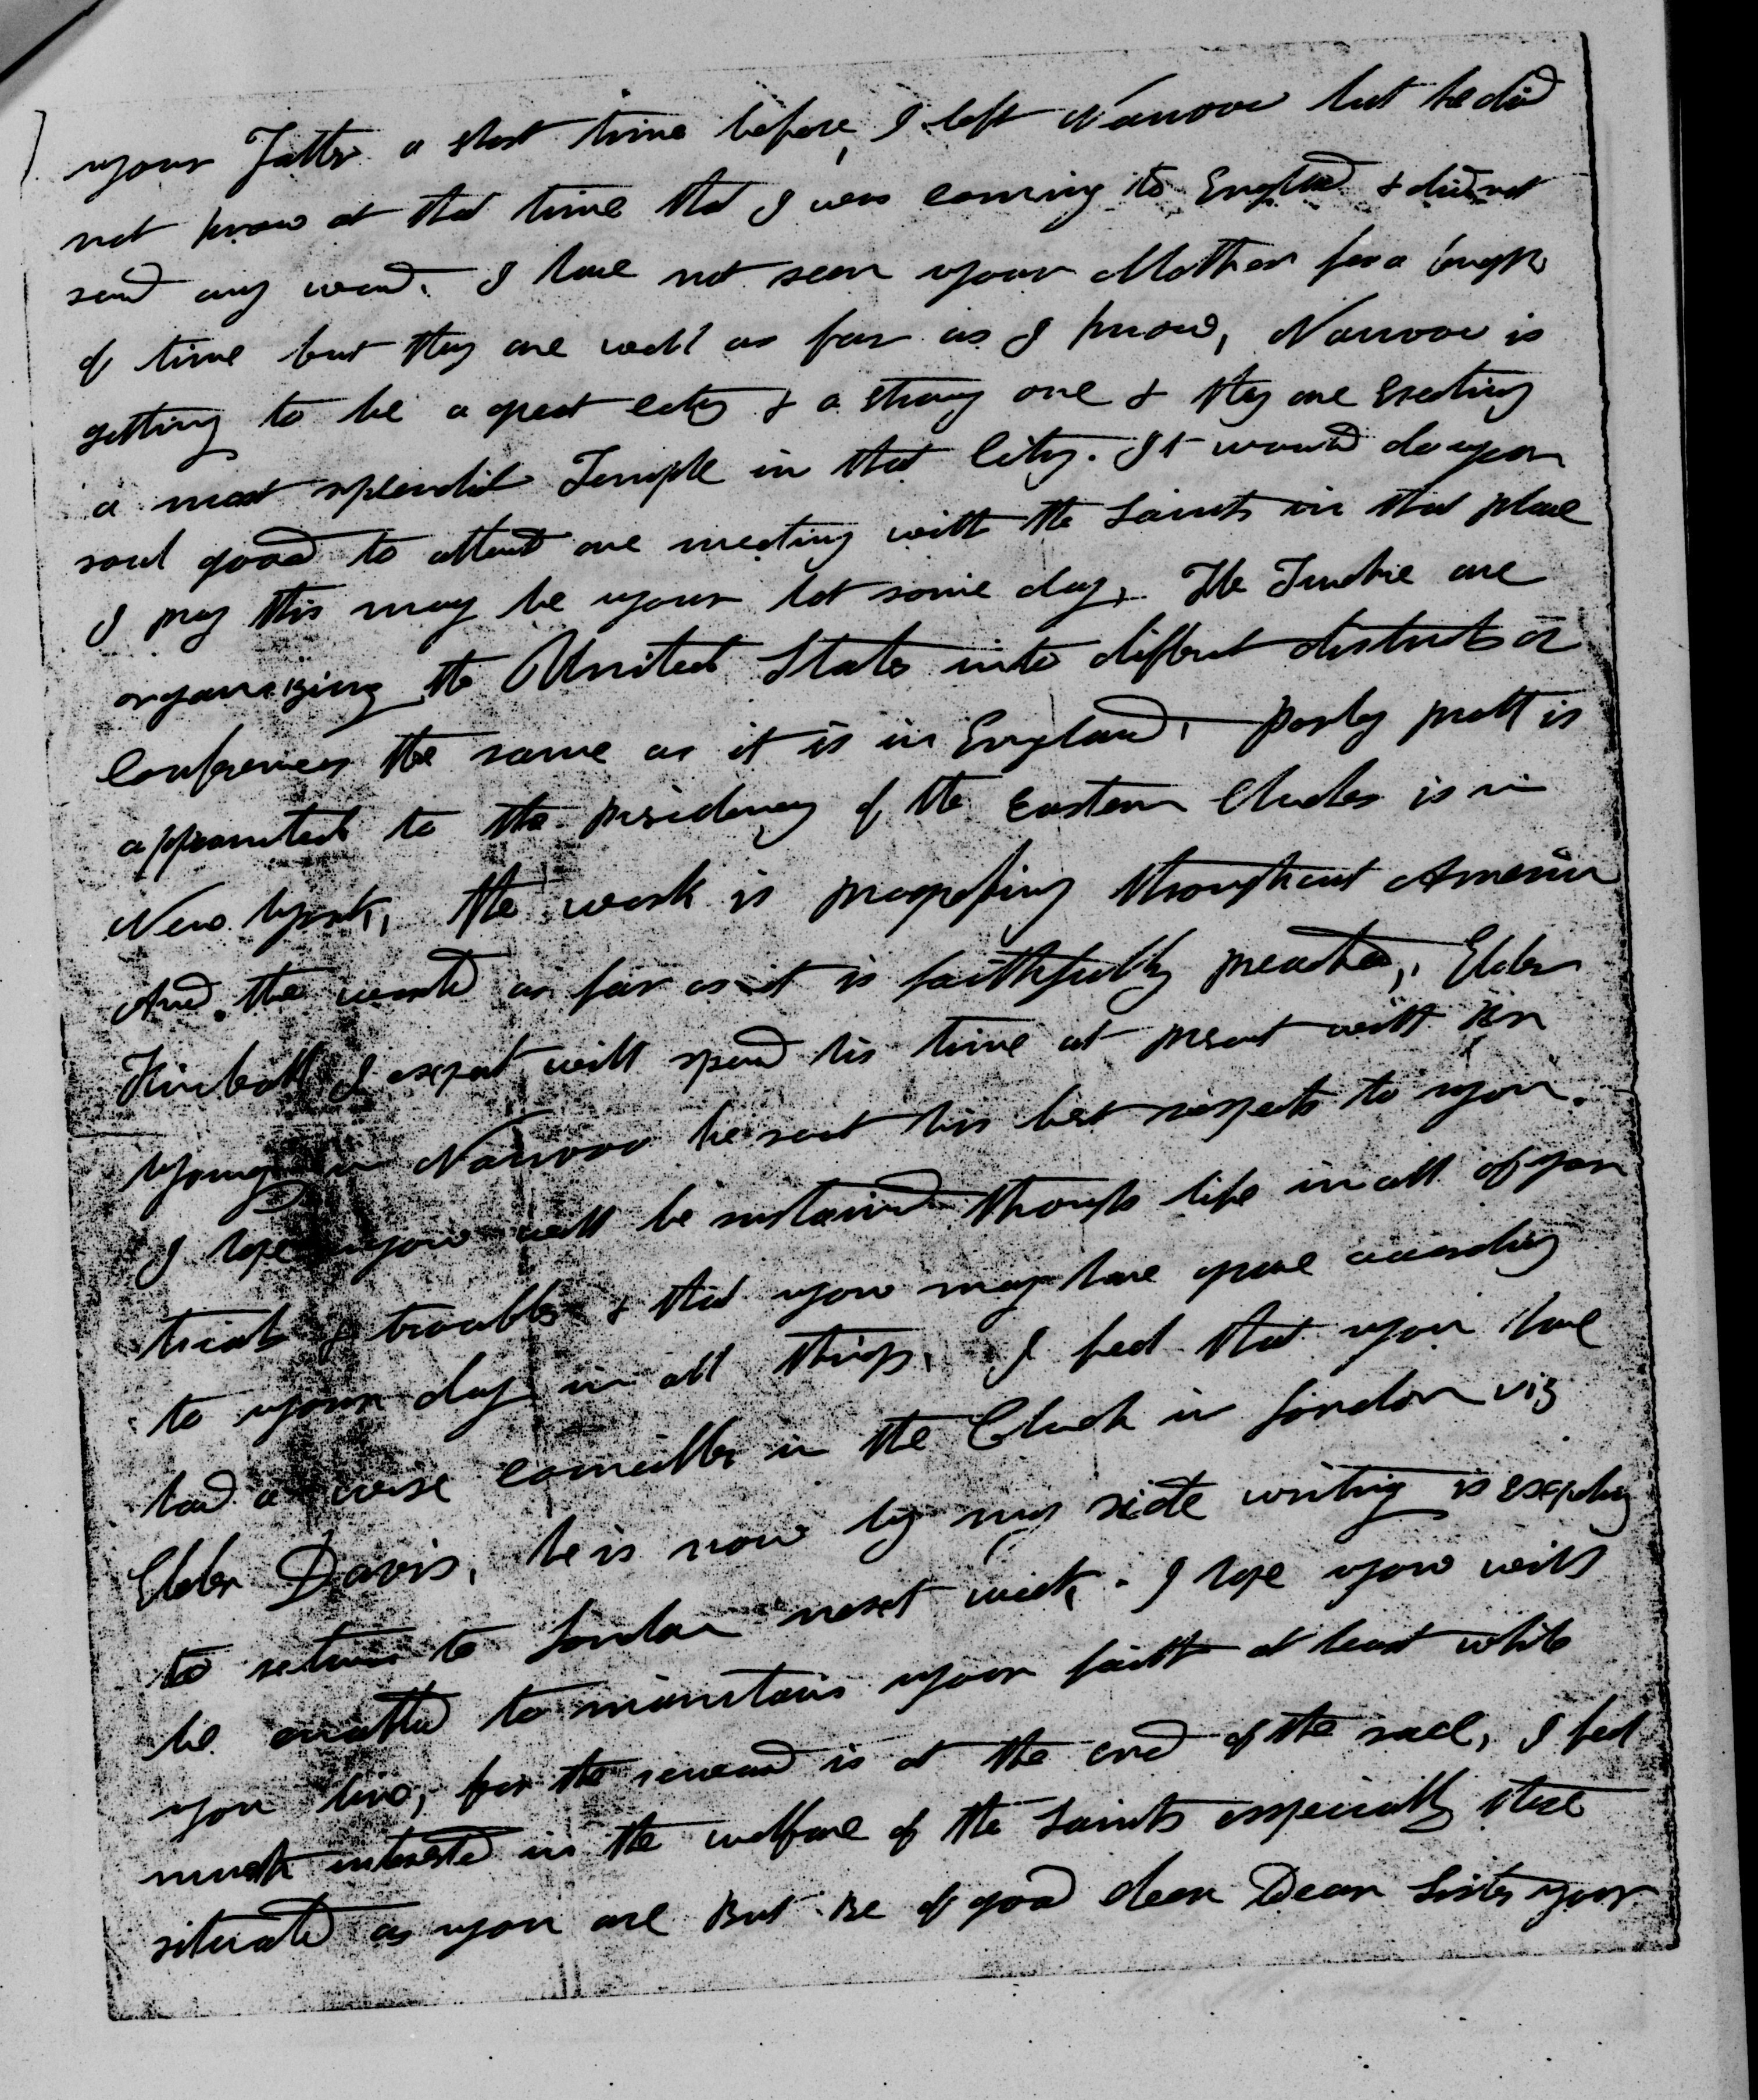 your Father a short time before I left Nauvoo but he did
not know at that time that I was coming to England & did not
send any word. I have not seen your Mother for a length
of time but they are well as far as I know, Nauvoo is
getting to be a great city & a strong one & they are Erecting
a most splendid Temple in that City. It would do your
soul good to attend one meeting with the Saints in that place
I pray this may be your lot some day, The Twelve are
organizing the United States into different districts or
Conferences the same as it is in England, Parley Pratt is
appointed to the presidency of the Eastern Churches is in
New York, the work is progressing throughout America
And the world as far as it is faithfully preached, Elder
Kimball I expect will spend his time at present with Br
Young in Nauvoo he sent his best respects to you.
I hope you will be sustained through life in all of your
trials & troubles & that you may have grace according
to your day in all things, I feel that you have
had a wise councellor in the Church in London viz
Elder Davis, he is now by my side writing is expecting
to return to London next week. I hope you will
be enabled to maintain your faith at least while
you live, for the reward is at the end of the race, I feel
much interested in the welfare of the Saints especially those
situated as you are But Be of good cheer Dear Sister your